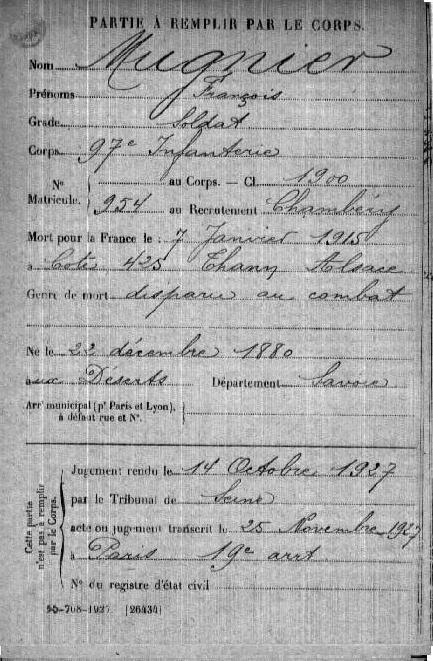 PARTIE À REMPLIR PAR LE CORPS.
Nom Mugnier
Prénoms François
Grade Soldat
Corps 97e Infanterie
N° Matricule. au Corps. — Cl. 1900
954 au Recrutement Chambéry
Mort pour la France le 7 Janvier 1915
à Cote 425 Thann Alsace
Genre de mort disparu au combat
Né le 22 décembre 1880
aux Déserts Département Savoie
Arrt municipal (pr Paris et Lyon), à défaut rue et N°.
Cette partie n'est pas à remplir par le Corps.
Jugement rendu le 14 Octobre 1927
par le Tribunal de Seine
acte ou jugement transcrit le 25 Novembre 1927
à Paris 19e arrt
N° du registre d'état civil
-708-1927. [26434]